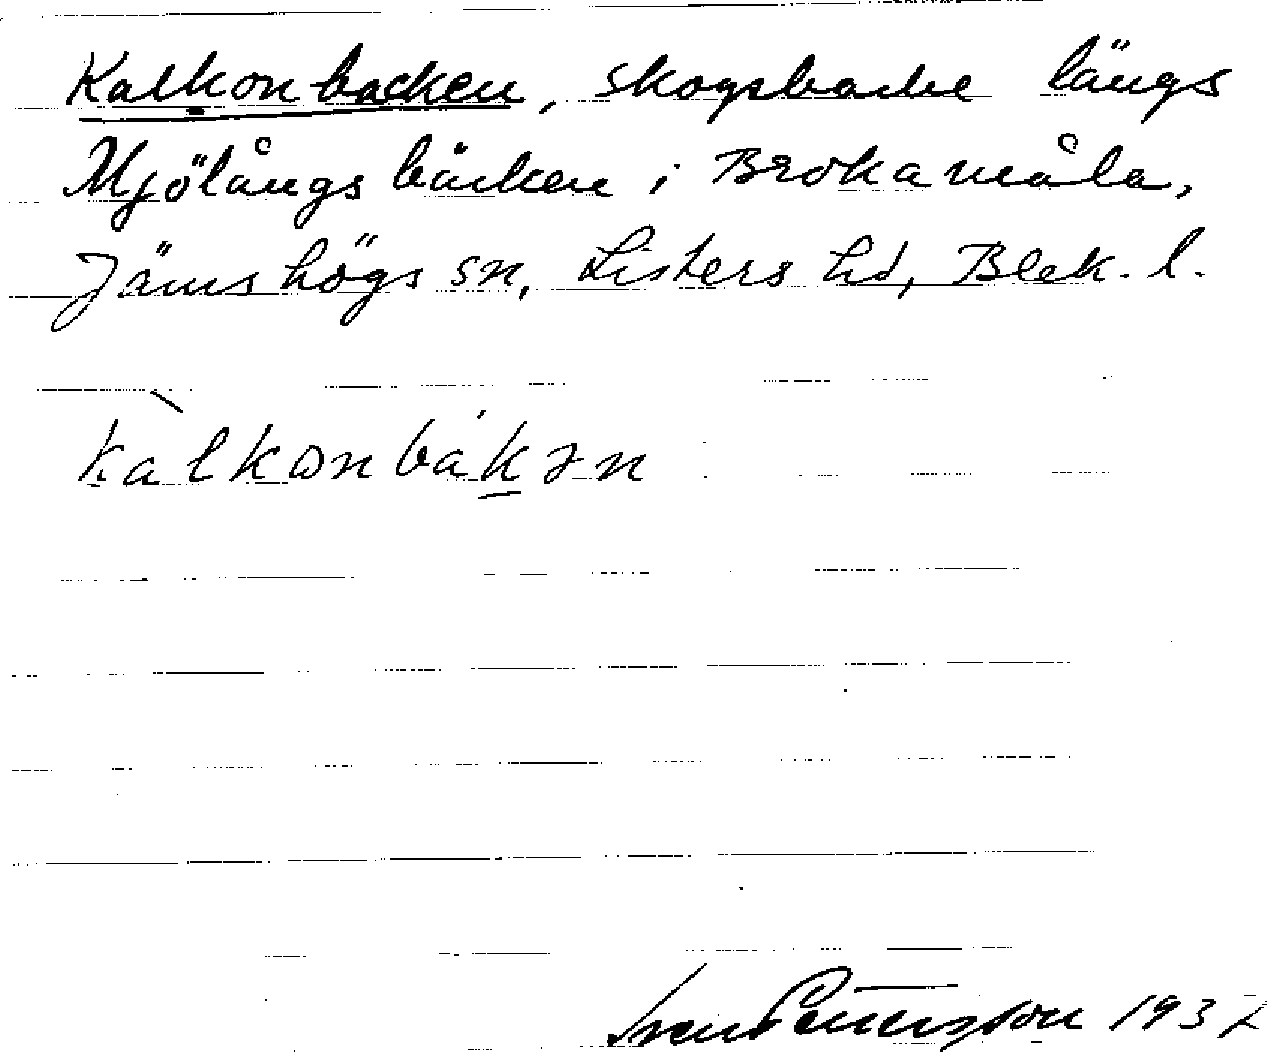 Kalkonbacken, skogsbacke längs
Mjölångsbäcken i Brokamåla,
Jämshögs sn, Listers hd, Blek. l.
kàlkonbákən
Sven Pettersson 1937